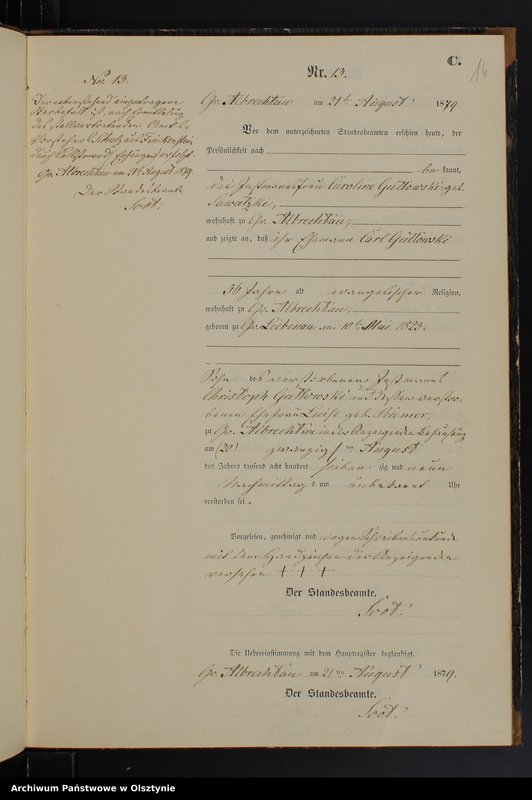 C.
14
Nr. 13.
Gr. Albrechtau am 21ten August 1879
Vor dem unterzeichneten Standesbeamten erschien heute, der
Persönlichkeit nach
bekannt,
die Instmannsfrau Caroline Gutkowski geb.
Sawatzki,
wohnhaft zu Gr. Albrechtau,
und zeigte an, daß ihr Ehemann Carl Gutkowski
56 Jahre alt evangelischer Religion,
wohnhaft zu Gr. Albrechtau,
geboren zu Gr. Liebenau am 10ten Mai 1823.
Sohn des verstorbenen Instmanns
Christoph Gutkowski und dessen verstor-
benen Ehefrau Luise geb.
zu Gr. Albrechtau in der Anzeigenden Behausung
am (20) zwanzigsten August
des Jahres tausend acht hundert siebenzig und neun
Nachmittags um unbekannt Uhr
verstorben sei.
Vorgelesen, genehmigt und wegen Schreibensunkunde
mit dem Handzeichen der Anzeigenden
versehen + + +
Der Standesbeamte.
Die Uebereinstimmung mit dem Hauptregister beglaubigt.
Gr. Albrechtau am 21ten August 1879.
Der Standesbeamte.
No. 13.
Der nebenstehend eingetragene
Sterbefall ist nach Ermittelung
des stellvertretenden
Vorsteher Schulz aus Finckenstein
Gr. Albrechtau am 21t August 1879.
Der Standesbeamte
Archiwum Państwowe w Olsztynie